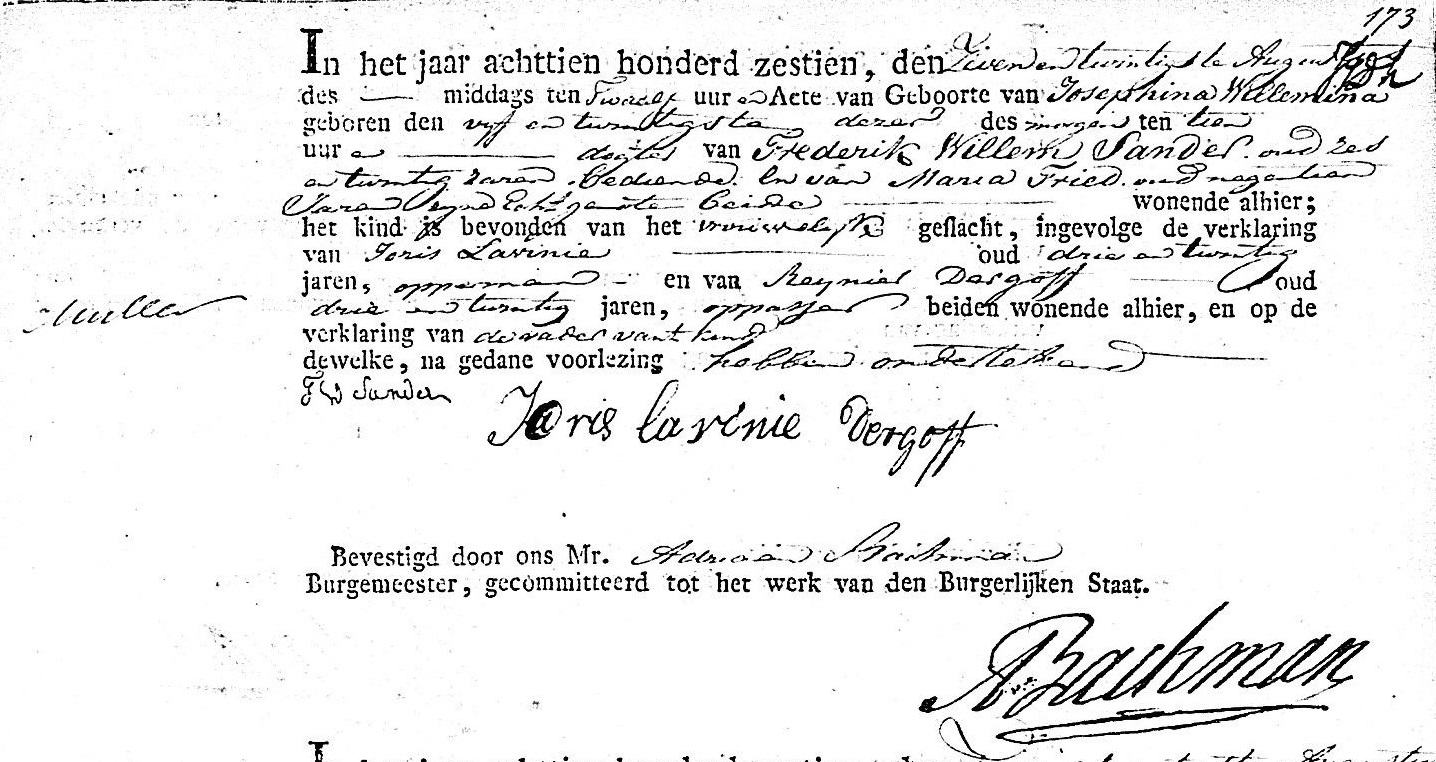 173
In het jaar achttien honderd zestien, den Zeven en twintigste Augustus
des — middags ten Twaalf uur Acte van Geboorte van Josephina Willemina
geboren den vyf en twintigste dezer des morgens ten tien
uur dogter van Frederik Willem Sander oud zes
en twintig Jaren bediende En van Maria Fried oud negentien
Jaren Egte beide wonende alhier;
het kind is bevonden van het vrouwelyke geslacht, ingevolge de verklaring
van Joris Lavinie oud drie en twintig
jaren, opperman en van Reynier Dergoff oud
Muller
drie en twintig jaren, oppasser beiden wonende alhier, en op de
verklaring van de vader vant kind
dewelke, na gedane voorlezing hebben ondertekend
FW Sander
Joris lavinie Dergoff
Bevestigd door ons Mr. Adriaan Bachman
Burgemeester, gecommitteerd tot het werk van den Burgerlijken Staat.
A Bachman